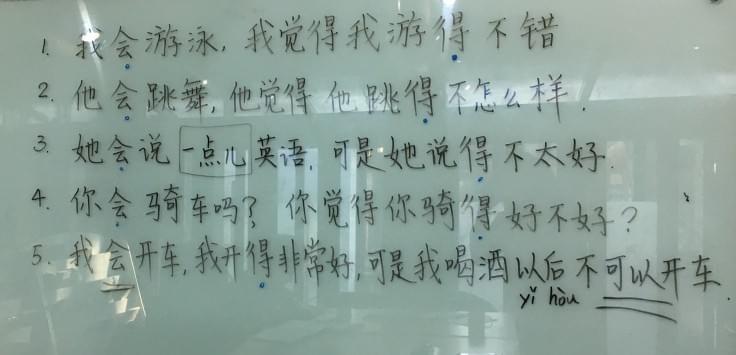 1. 我会游泳，我觉得我游得不错
2. 他会跳舞，他觉得他跳得不怎么样.
3. 她会说一点儿英语，可是她说得不太好.
4. 你会骑车吗？你觉得你骑得好不好？
5. 我会开车，我开得非常好，可是我喝酒以后不可以开车.
yǐ hòu